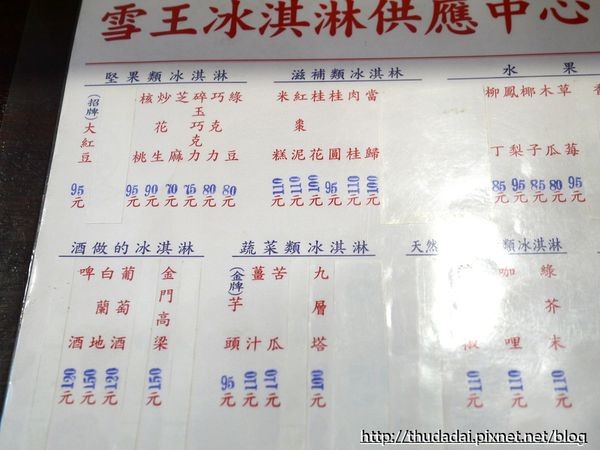 雪王冰淇淋供應中心
堅果類冰淇淋
(招牌)大紅豆 95元
核桃 95元
炒花生 90元
芝麻 70元
碎玉巧克力 75元
巧克力 80元
綠豆 80元
滋補類冰淇林
米糕 110元
紅棗泥 110元
桂花 100元
桂圓 95元
肉桂 110元
當歸 100元
水果
柳丁 85元
鳳梨 95元
椰子 85元
木瓜 80元
草莓 95元
酒做的冰淇淋
啤酒 120元
白蘭地 150元
葡萄酒 120元
金門高梁 150元
蔬菜類冰淇淋
(金牌)芋頭 95元
薑汁 110元
苦瓜 110元
九層塔 100元
天然 類冰淇淋
椒 110元
咖哩 110元
綠芥末 110元
http://thudadai.pixnet.net/blog